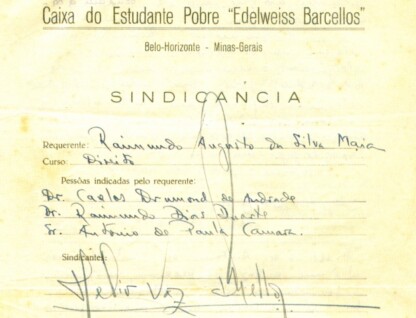 Caixa do Estudante Pobre "Edelweiss Barcellos"
Belo-Horizonte - Minas-Gerais
SINDICANCIA
Requerente: Raimundo Augusto da Silva Maia
Curso: Direito
Pessôas indicadas pelo requerente:
Dr. Carlos Drumond de Andrade
Dr. Raimundo Dias Duarte
Sr. Antonio de Paula Camara.
Sindicante:
Helio Vaz Mello